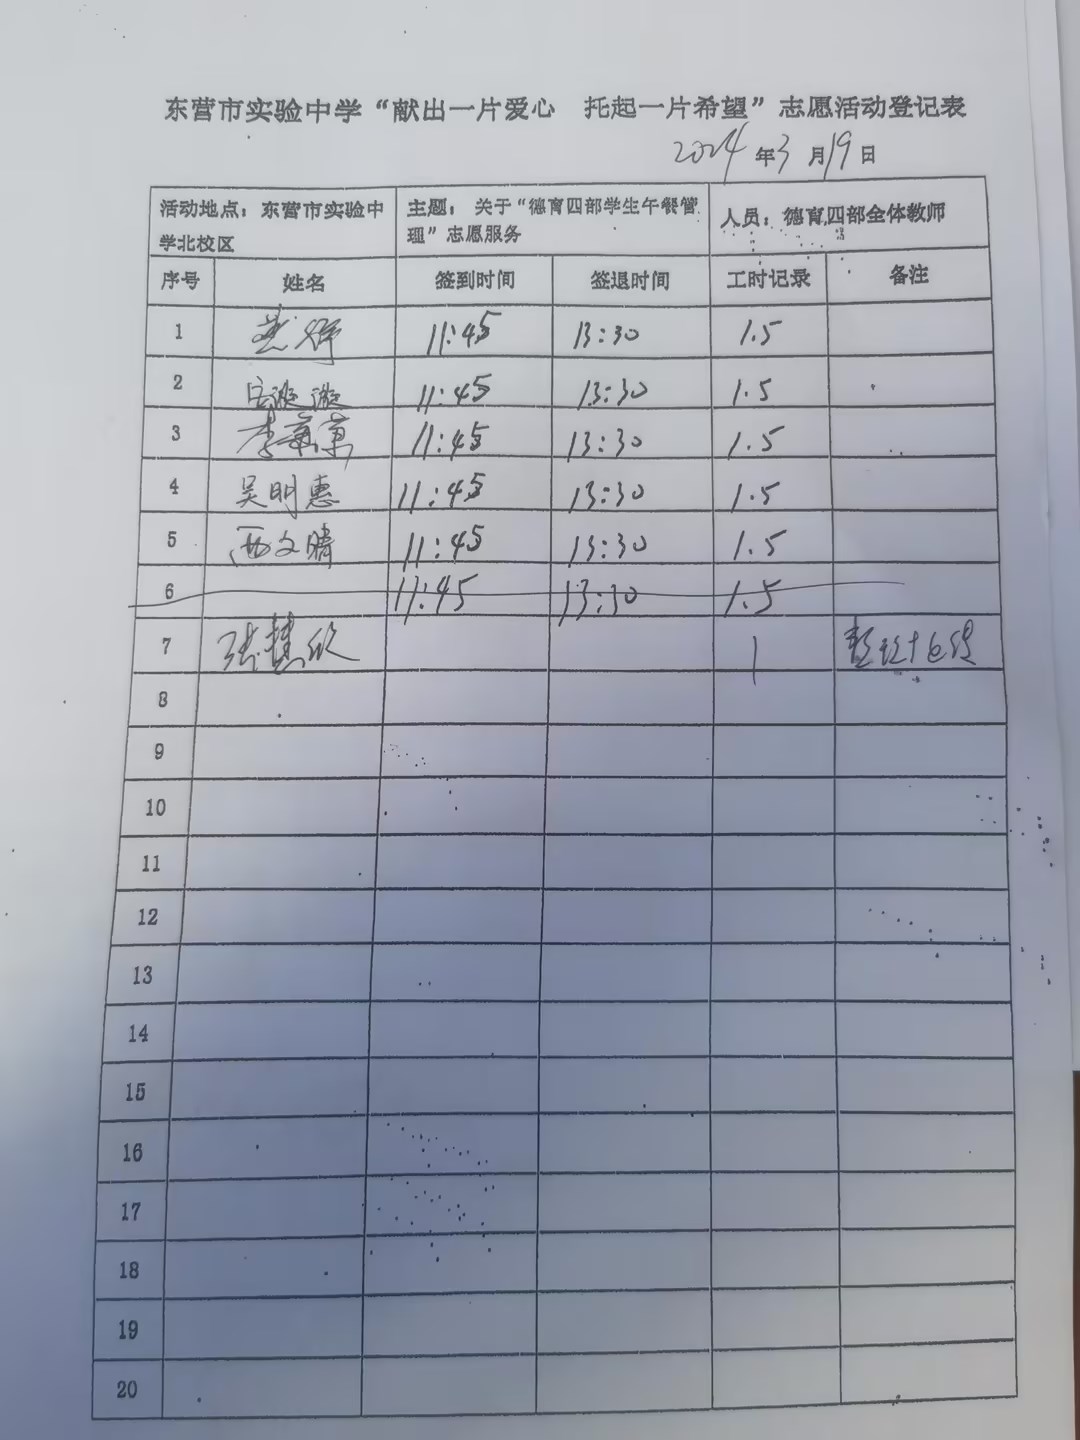 东营市实验中学“献出一片爱心 托起一片希望”志愿活动登记表
2024年3月19日
活动地点：东营市实验中学北校区 主题：关于“德育四部学生午餐管理”志愿服务 人员：德育四部全体教师
序号 姓名 签到时间 签退时间 工时记录 备注
1 11:45 13:30 1.5
2 11:45 13:30 1.5
3 李 11:45 13:30 1.5
4 吴明惠 11:45 13:30 1.5
5 西文晴 11:45 13:30 1.5
6 11:45 13:30 1.5
7 张慧欣 1
8
9
10
11
12
13
14
15
16
17
18
19
20